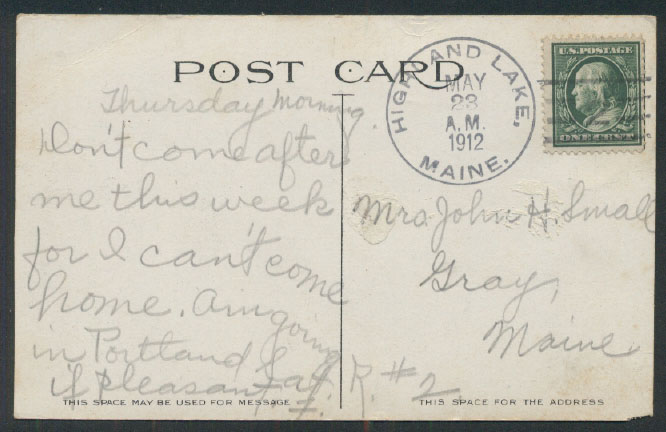 POST CARD
HIGHLAND LAKE,
MAY
23
A.M.
1912
MAINE.
U.S. POSTAGE
ONE CENT
Thursday Morning.
Don't come after
me this week
for I can't come
home. Am going
in Portland Sat.
if pleasant.
Mrs. John H. Small
Gray,
Maine
R. #2
THIS SPACE MAY BE USED FOR MESSAGE
THIS SPACE FOR THE ADDRESS